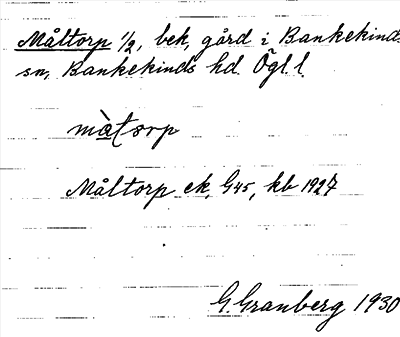 Måltorp 1/2, bek, gård i Bankekinds
sn, Bankekinds hd. Ögl. l.
màtorp
Måltorp ek, G45, kb 1927
G. Granberg 1930